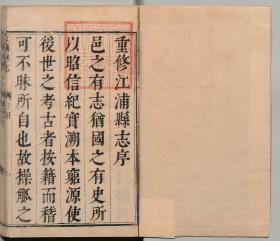 重修江浦縣志序
邑之有志猶國之有史所
以昭信紀實溯本窮源使
後世之考古者按籍而稽
可不昧所自也故操觚